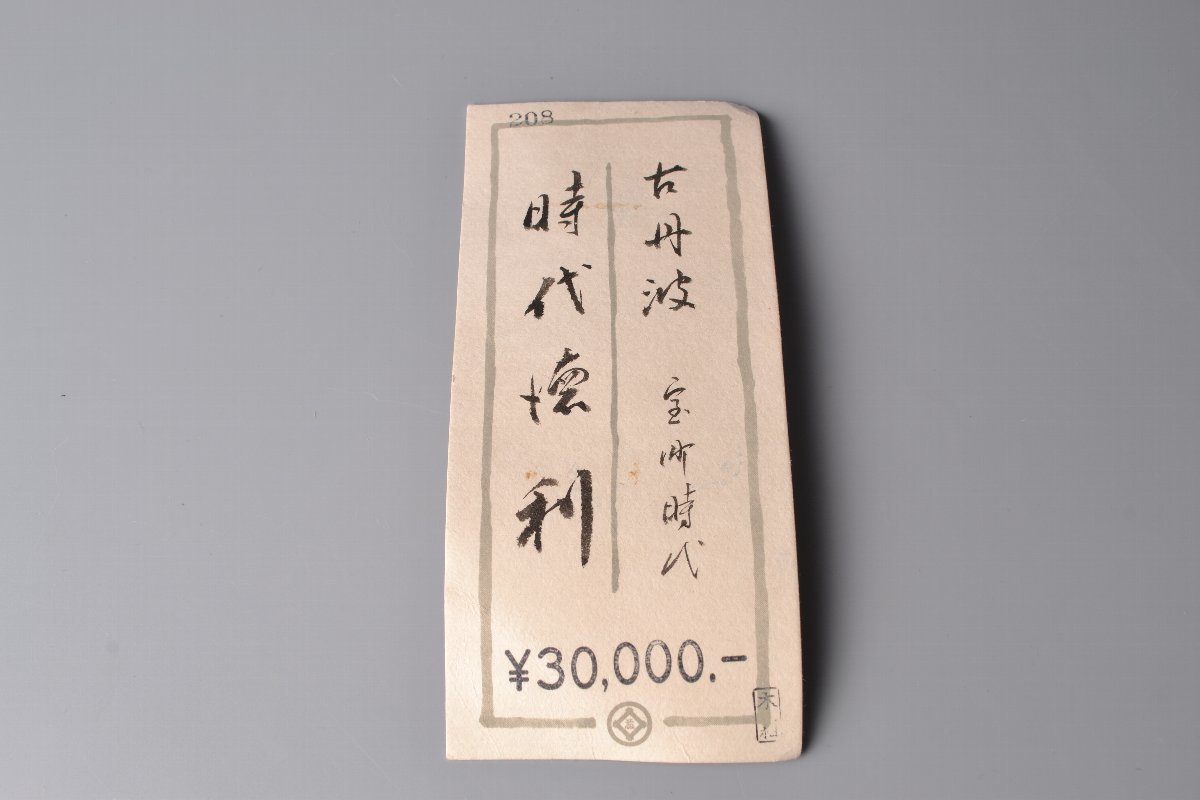 208
古丹波 室町時代
時代徳利
¥30,000.-